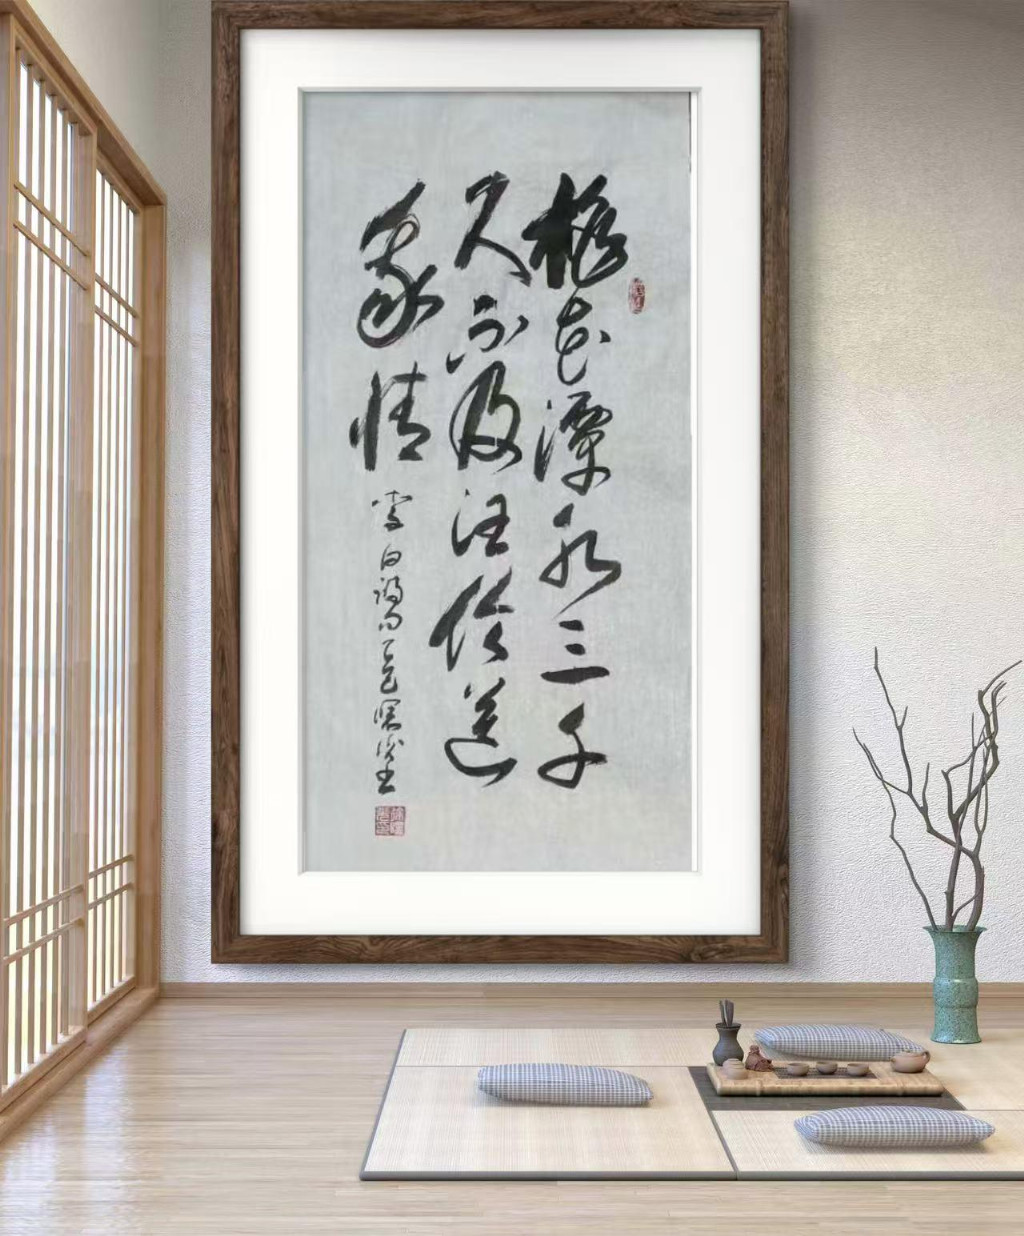 桃花潭水三千
尺不及汪伦送
我情
李白詩